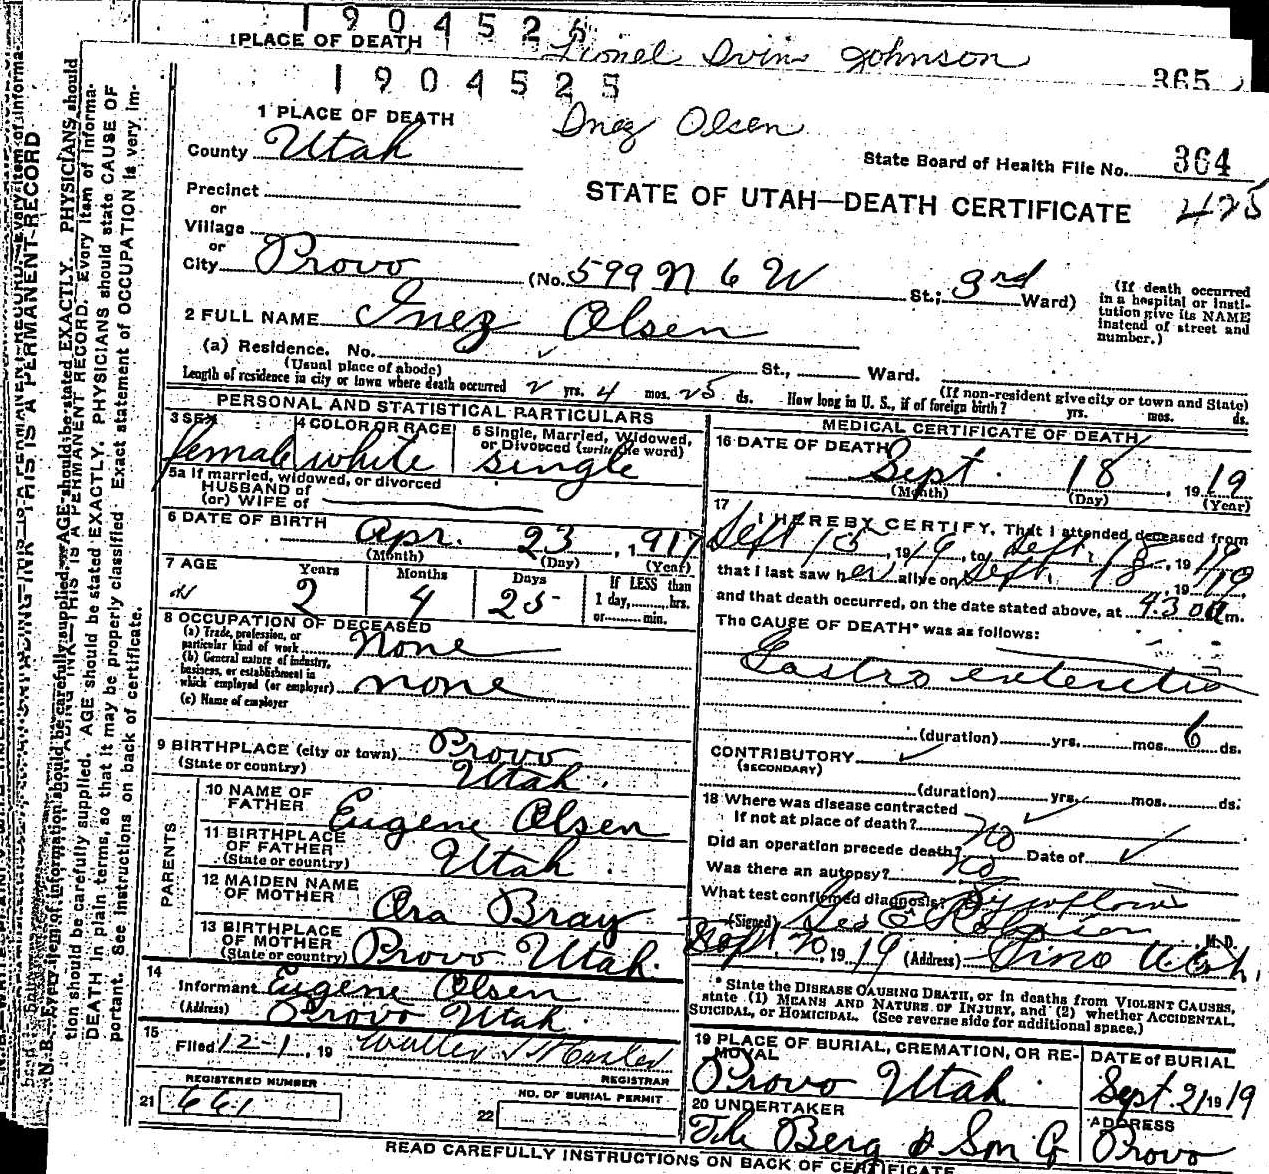 1904525
1 PLACE OF DEATH
Lionel Irvin Johnson
365
1904525
1 PLACE OF DEATH
Inez Olsen
County Utah
State Board of Health File No. 364
Precinct
or
STATE OF UTAH—DEATH CERTIFICATE 425
Village
or
City Provo (No. 599 N 6 W St.; 3rd Ward)
(If death occurred in a hospital or insti-
tution give its NAME
instead of street and
number.)
2 FULL NAME Inez Olsen
(a) Residence. No. St., Ward.
(Usual place of abode)
(If non-resident give city or town and State)
Length of residence in city or town where death occurred 2 yrs. 4 mos. 25 ds. How long in U. S., if of foreign birth? yrs. mos. ds.
PERSONAL AND STATISTICAL PARTICULARS
3 SEX
female
4 COLOR OR RACE
white
5 Single, Married, Widowed,
or Divorced (write the word)
single
5a If married, widowed, or divorced
HUSBAND of
(or) WIFE of
6 DATE OF BIRTH Apr. 23, 1917
(Month) (Day) (Year)
7 AGE Years Months Days If LESS than
1 day, hrs.
or min.
2 4 25
8 OCCUPATION OF DECEASED
(a) Trade, profession, or
particular kind of work None
(b) General nature of industry,
business, or establishment in
which employed (or employer) none
(c) Name of employer
9 BIRTHPLACE (city or town) Provo
(State or country) Utah.
PARENTS
10 NAME OF
FATHER Eugene Olsen
11 BIRTHPLACE
OF FATHER
(State or country) Utah.
12 MAIDEN NAME
OF MOTHER Ora Bray
13 BIRTHPLACE
OF MOTHER
(State or country) Provo Utah.
14
Informant Eugene Olsen
(Address) Provo Utah.
15
Filed 12-1, 19
REGISTRAR
REGISTERED NUMBER
21 661
NO. OF BURIAL PERMIT
22
MEDICAL CERTIFICATE OF DEATH
16 DATE OF DEATH
Sept. 18, 1919
(Month) (Day) (Year)
17 I HEREBY CERTIFY, That I attended deceased from
Sept 15, 1919, to Sept. 18, 1919
that I last saw her alive on Sept. 18, 1919
and that death occurred, on the date stated above, at 4.30 a m.
The CAUSE OF DEATH* was as follows:
Gastro enteritis
(duration) yrs. mos. 6 ds.
CONTRIBUTORY
(SECONDARY)
(duration) yrs. mos. ds.
18 Where was disease contracted
If not at place of death?
Did an operation precede death? no Date of
Was there an autopsy? no
What test confirmed diagnosis? Symptoms
(Signed) M. D.
Sept. 20, 1919 (Address) Provo Utah.
* State the DISEASE CAUSING DEATH, or in deaths from VIOLENT CAUSES,
state (1) MEANS AND NATURE OF INJURY, and (2) whether ACCIDENTAL,
SUICIDAL, or HOMICIDAL. (See reverse side for additional space.)
19 PLACE OF BURIAL, CREMATION, OR RE-
MOVAL
Provo Utah.
DATE of BURIAL
Sept. 21 1919
20 UNDERTAKER
The Berg & Son Co
ADDRESS
Provo
READ CAREFULLY INSTRUCTIONS ON BACK OF CERTIFICATE
THIS IS A PERMANENT RECORD
N. B.—Every item of informa-
tion should be carefully supplied. AGE should be stated EXACTLY. PHYSICIANS should state CAUSE OF
DEATH in plain terms, so that it may be properly classified. Exact statement of OCCUPATION is very im-
portant. See instructions on back of certificate.